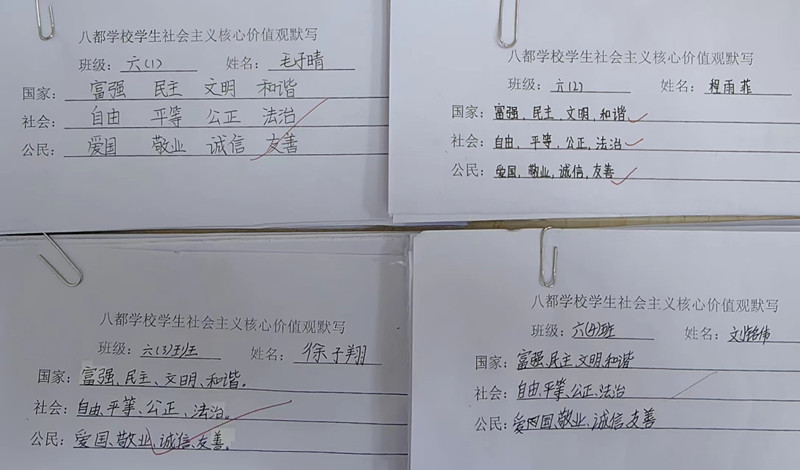 八都学校学生社会主义核心价值观默写
班级: 六(1) 姓名: 毛子晴
国家: 富强 民主 文明 和谐
社会: 自由 平等 公正 法治
公民: 爱国 敬业 诚信 友善
八都学校学生社会主义核心价值观默写
班级: 六(2) 姓名: 程雨菲
国家: 富强、民主、文明、和谐
社会: 自由、平等、公正、法治
公民: 爱国、敬业、诚信、友善
八都学校学生社会主义核心价值观默写
班级: 六(3)班 姓名: 徐子翔
国家: 富强、民主、文明、和谐。
社会: 自由、平等、公正、法治。
公民: 爱国、敬业、诚信、友善。
八都学校学生社会主义核心价值观默写
班级: 六(4)班 姓名: 伟
国家: 富强、民主、文明、和谐
社会: 自由、平等、公正、法治
公民: 爱国、敬业、诚信、友善